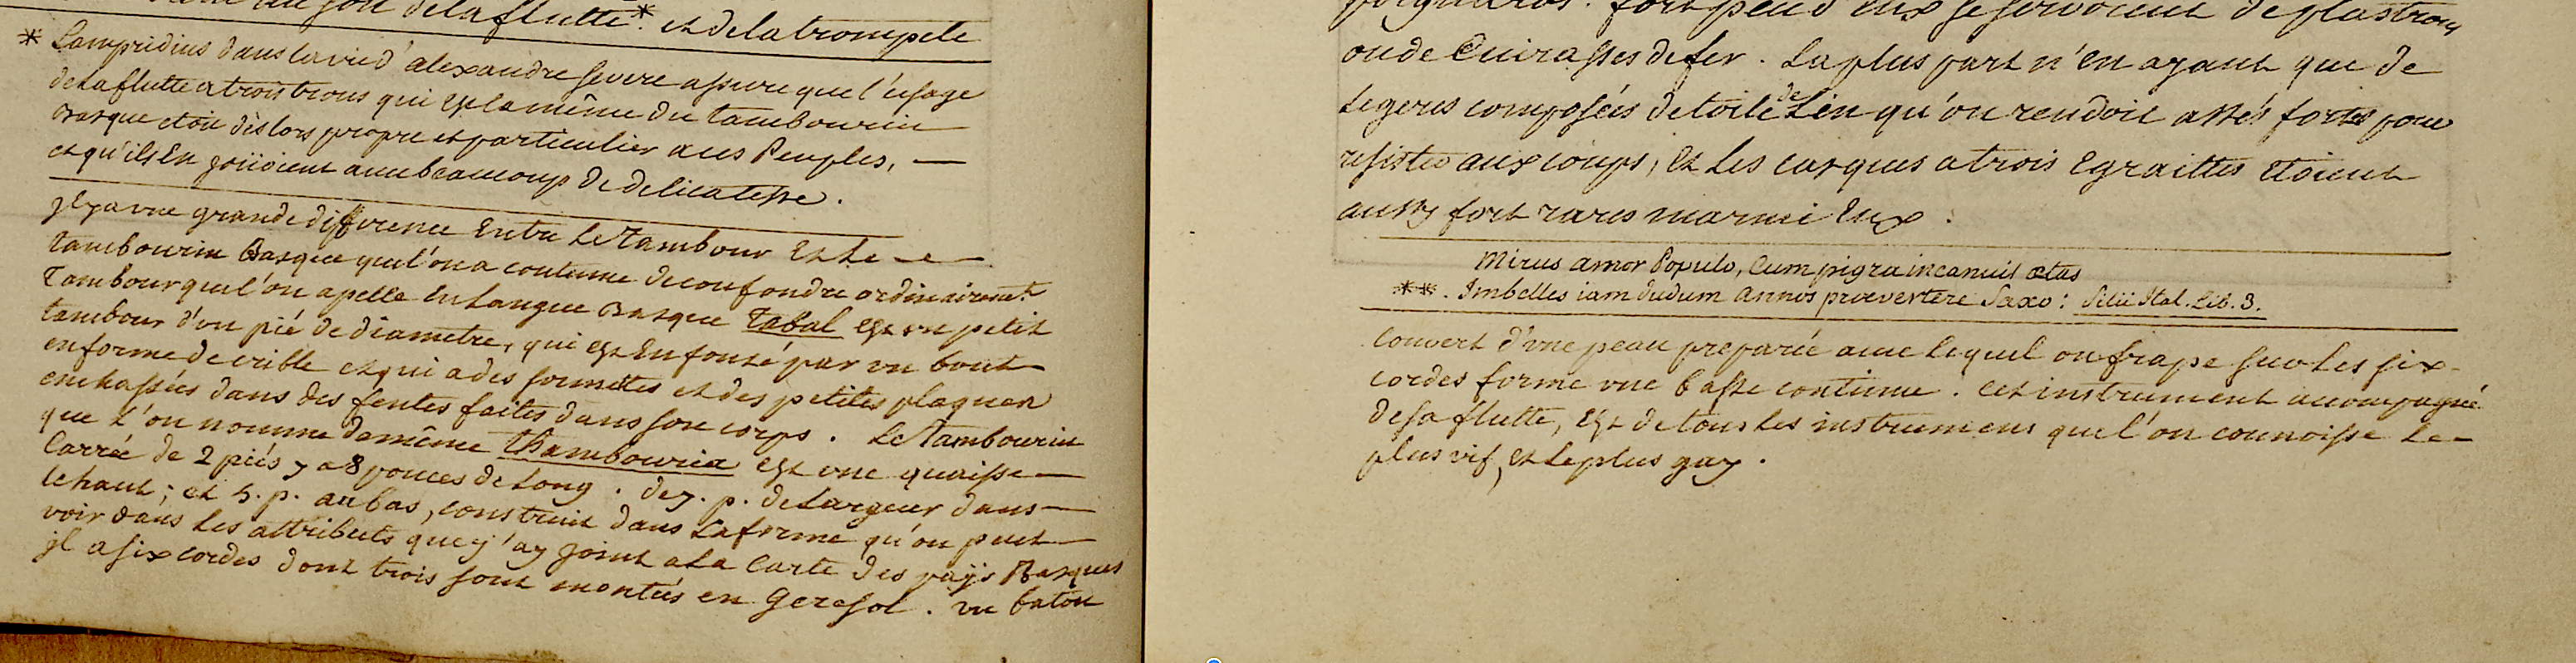 au son de la flutte * et de la trompete
* Lampridius dans la vie d'alexandre severe assure que l'usage
de la flutte a trois trous qui est la même du tambourin
Basque etoit dès lors propre et particulier a ces Peuples, —
et qu'ils En joüoient avec beaucoup de delicatesse.
jl y a vne grande difference Entre le Tambour Et le —
tambourin Basque que l'on a coutume de confondre ordinairemt.
Tambour que l'on apelle En Langue Basque Tabal est vn petit
tambour d'vn pié de diametre, qui est Enfoncé par vn bout —
en forme de crible et qui a des sonnettes et des petites plaques
enchassées dans des fentes faites dans son corps. Le Tambourin
que l'on nomme de même thambouria est vne quaisse —
Carrée de 2 piés 7 a 8 pouces de Long. de 7. p. de Largeur dans —
le haut; et 5. p. au bas, construit dans La forme qu'on peut —
voir dans Les attributs que j'ay joint a La Carte des païs Basques
jl a six cordes dont trois sont montées en Geresol. vn baton
fort peu d'eux se servoient de plastrons
ou de Cuirasses de fer. La plus part n'En ayant que de
Legeres composées de toile de Lin qu'on rendoit assés fortes pour
resister aux coups, Et Les casques a trois Egraittes Etoient
aussy fort rares marmi Eux.
Mirus amor Populo, Cum pigra incanuit ætas
**. Imbelles iam dudum Annos prævertere Saxo: Silii Ital. Lib. 3.
Couvert d'vne peau preparée avec Lequel on frape sur Les six —
cordes forme vne basse continue. Cet instrument accompagné
de sa flutte, Est de tous Les instrumens que l'on connoisse Le —
plus vif, Et Le plus gay.